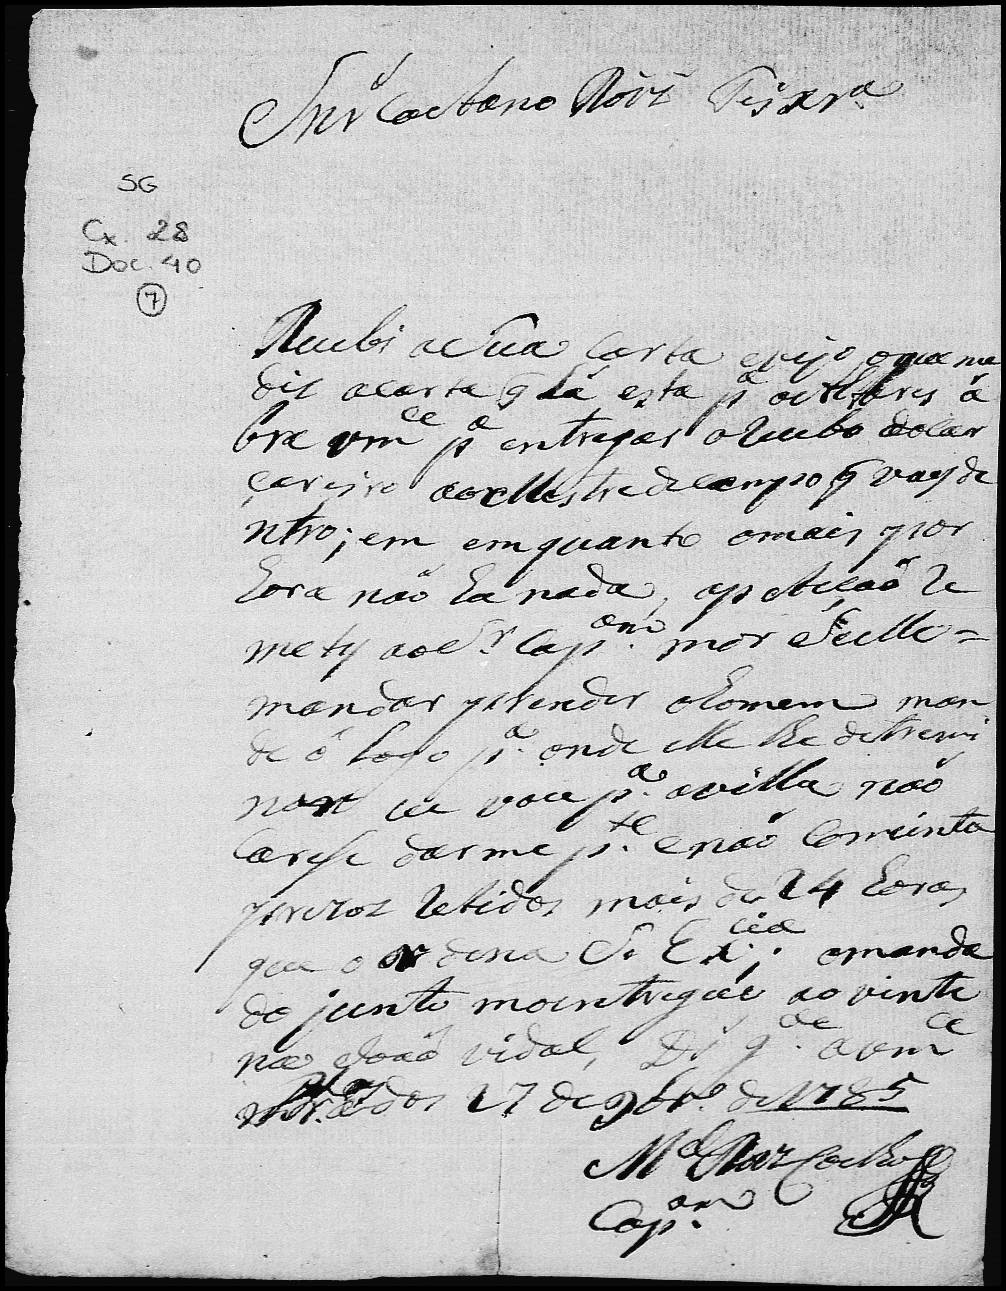 Snr Caetano Roiz Teixra
SG
Cx. 28
Doc. 40
7
Recebi a Sua Carta e vejo o que me
diz a carta q lá esta pa
bra vmce pa entregar o recibo do car
careiro ao Mestre de Campo q vay de
ntro; em emquanto o mais por
hora não ha nada, a petição re
mety ao Sr Capam mor Se elle
mandar prender o homem man
de o logo pa. onde elle lhe detremi
nar voce pa. a villa não
carese darme pte. e não Comcinta
prezos retidos mais de 24 horas
que ordena S. Exa. o manda
do junto mo entregue ao vinte
na João Vidal, Ds gde. a vmce
dos 17 de 9bro. de 1785
Mel Roiz Coelho
Capam.